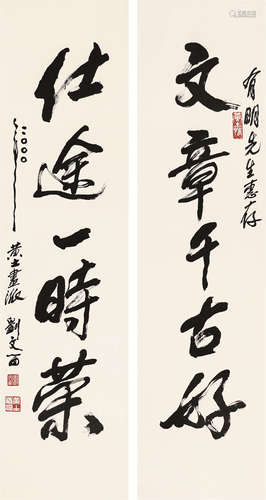 有明先生惠存
文章千古好
仕途一時荣
二〇〇〇年
黄土畫派 劉文西